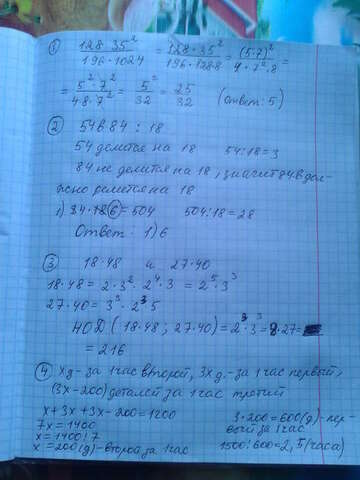 ① 128·35² / 196·1024 = 128·35² / 196·128·8 = (5·7)² / 4·7²·8 =
= 5²·7² / 4·8·7² = 5² / 32 = 25 / 32 (ответ: 5)
② 54в84 : 18
54 делится на 18 54:18=3
84 не делится на 18, значит 84в дол-
жно делится на 18
1) 84·18 6 = 504 504:18=28
Ответ: 1) 6
③ 18·48 и 27·40
18·48 = 2·3²·2⁴·3 = 2⁵·3³
27·40 = 3³·2³·5
НОД (18·48; 27·40) = 2³·3³ = 8·27 =
= 216
④ х д - за 1 час второй, 3х д. - за 1 час первый,
(3х-200) деталей за 1 час третий
х + 3х + 3х - 200 = 1200
7х = 1400
х = 1400:7
х = 200 (д) - второй за 1 час
3·200 = 600 (д) - пер-
вый за 1 час
1500:600 = 2,5 (часа)